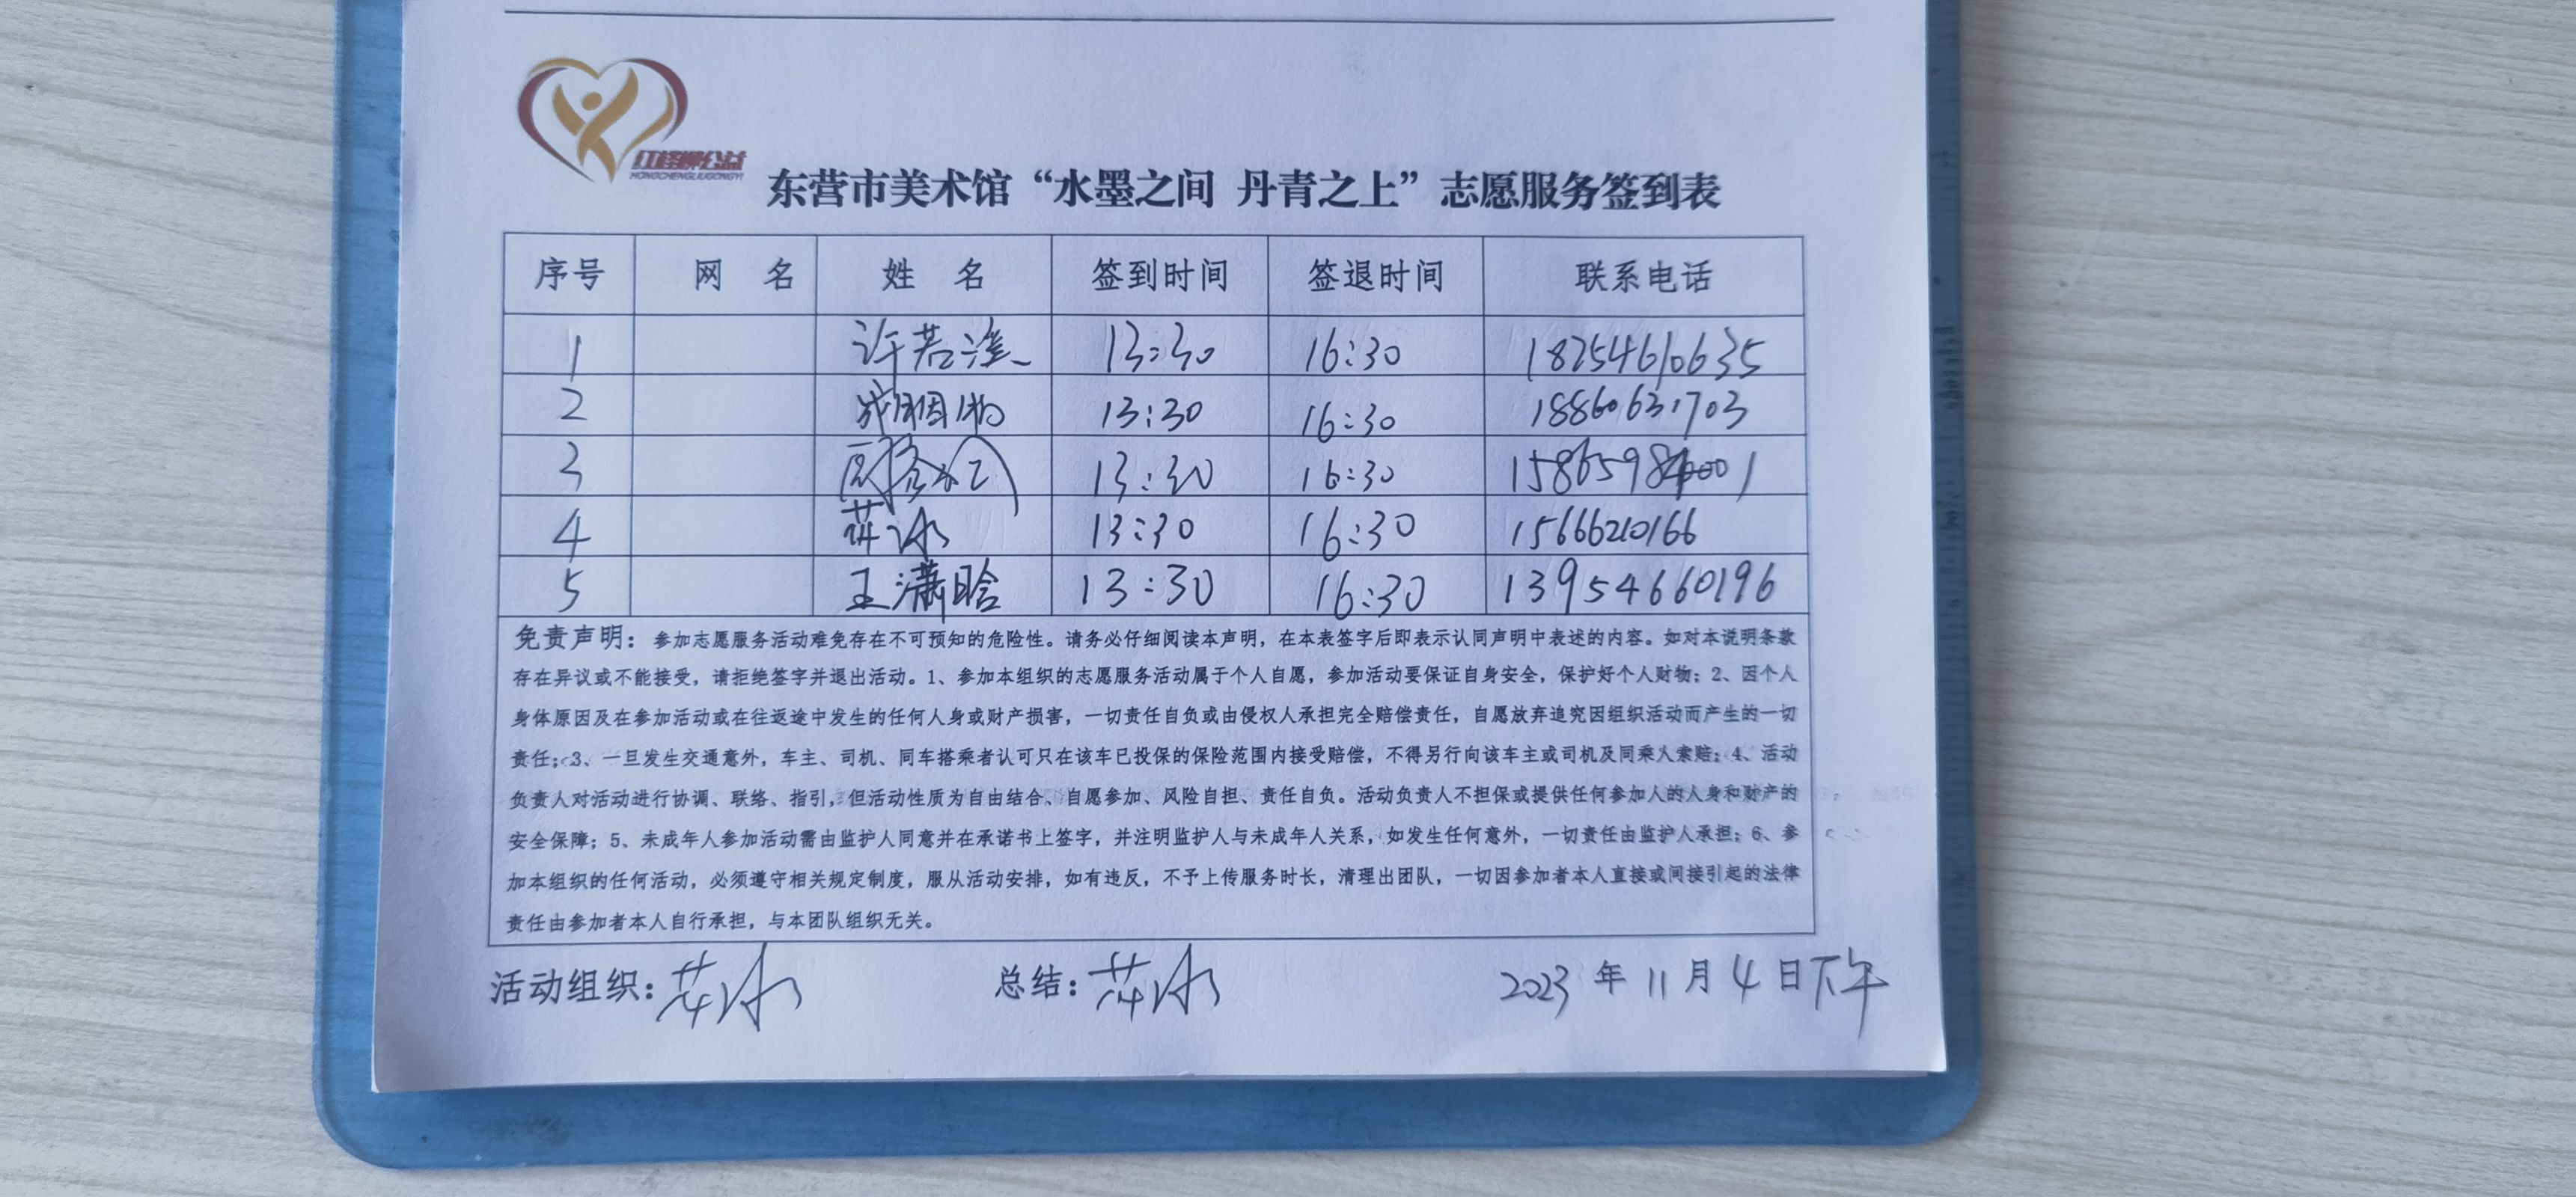 红柽柳公益
HONGCHENGLIUGONGYI
东营市美术馆“水墨之间 丹青之上”志愿服务签到表
序号 网 名 姓 名 签到时间 签退时间 联系电话
1 许若滢 13:30 16:30 18254610635
2 13:30 16:30 18860631703
3 13:30 16:30
4 13:30 16:30 15666210166
5 王潇晗 13:30 16:30 13954660196
免责声明：参加志愿服务活动难免存在不可预知的危险性。请务必仔细阅读本声明，在本表签字后即表示认同声明中表述的内容。如对本说明条款
存在异议或不能接受，请拒绝签字并退出活动。1、参加本组织的志愿服务活动属于个人自愿，参加活动要保证自身安全，保护好个人财物；2、因个人
身体原因及在参加活动或在往返途中发生的任何人身或财产损害，一切责任自负或由侵权人承担完全赔偿责任，自愿放弃追究因组织活动而产生的一切
责任；3、一旦发生交通意外，车主、司机、同车搭乘者认可只在该车已投保的保险范围内接受赔偿，不得另行向该车主或司机及同乘人索赔；4、活动
负责人对活动进行协调、联络、指引，但活动性质为自由结合、自愿参加、风险自担、责任自负。活动负责人不担保或提供任何参加人的人身和财产的
安全保障；5、未成年人参加活动需由监护人同意并在承诺书上签字，并注明监护人与未成年人关系，如发生任何意外，一切责任由监护人承担；6、参
加本组织的任何活动，必须遵守相关规定制度，服从活动安排，如有违反，不予上传服务时长，清理出团队，一切因参加者本人直接或间接引起的法律
责任由参加者本人自行承担，与本团队组织无关。
活动组织： 总结： 2023 年 11 月 4 日下午